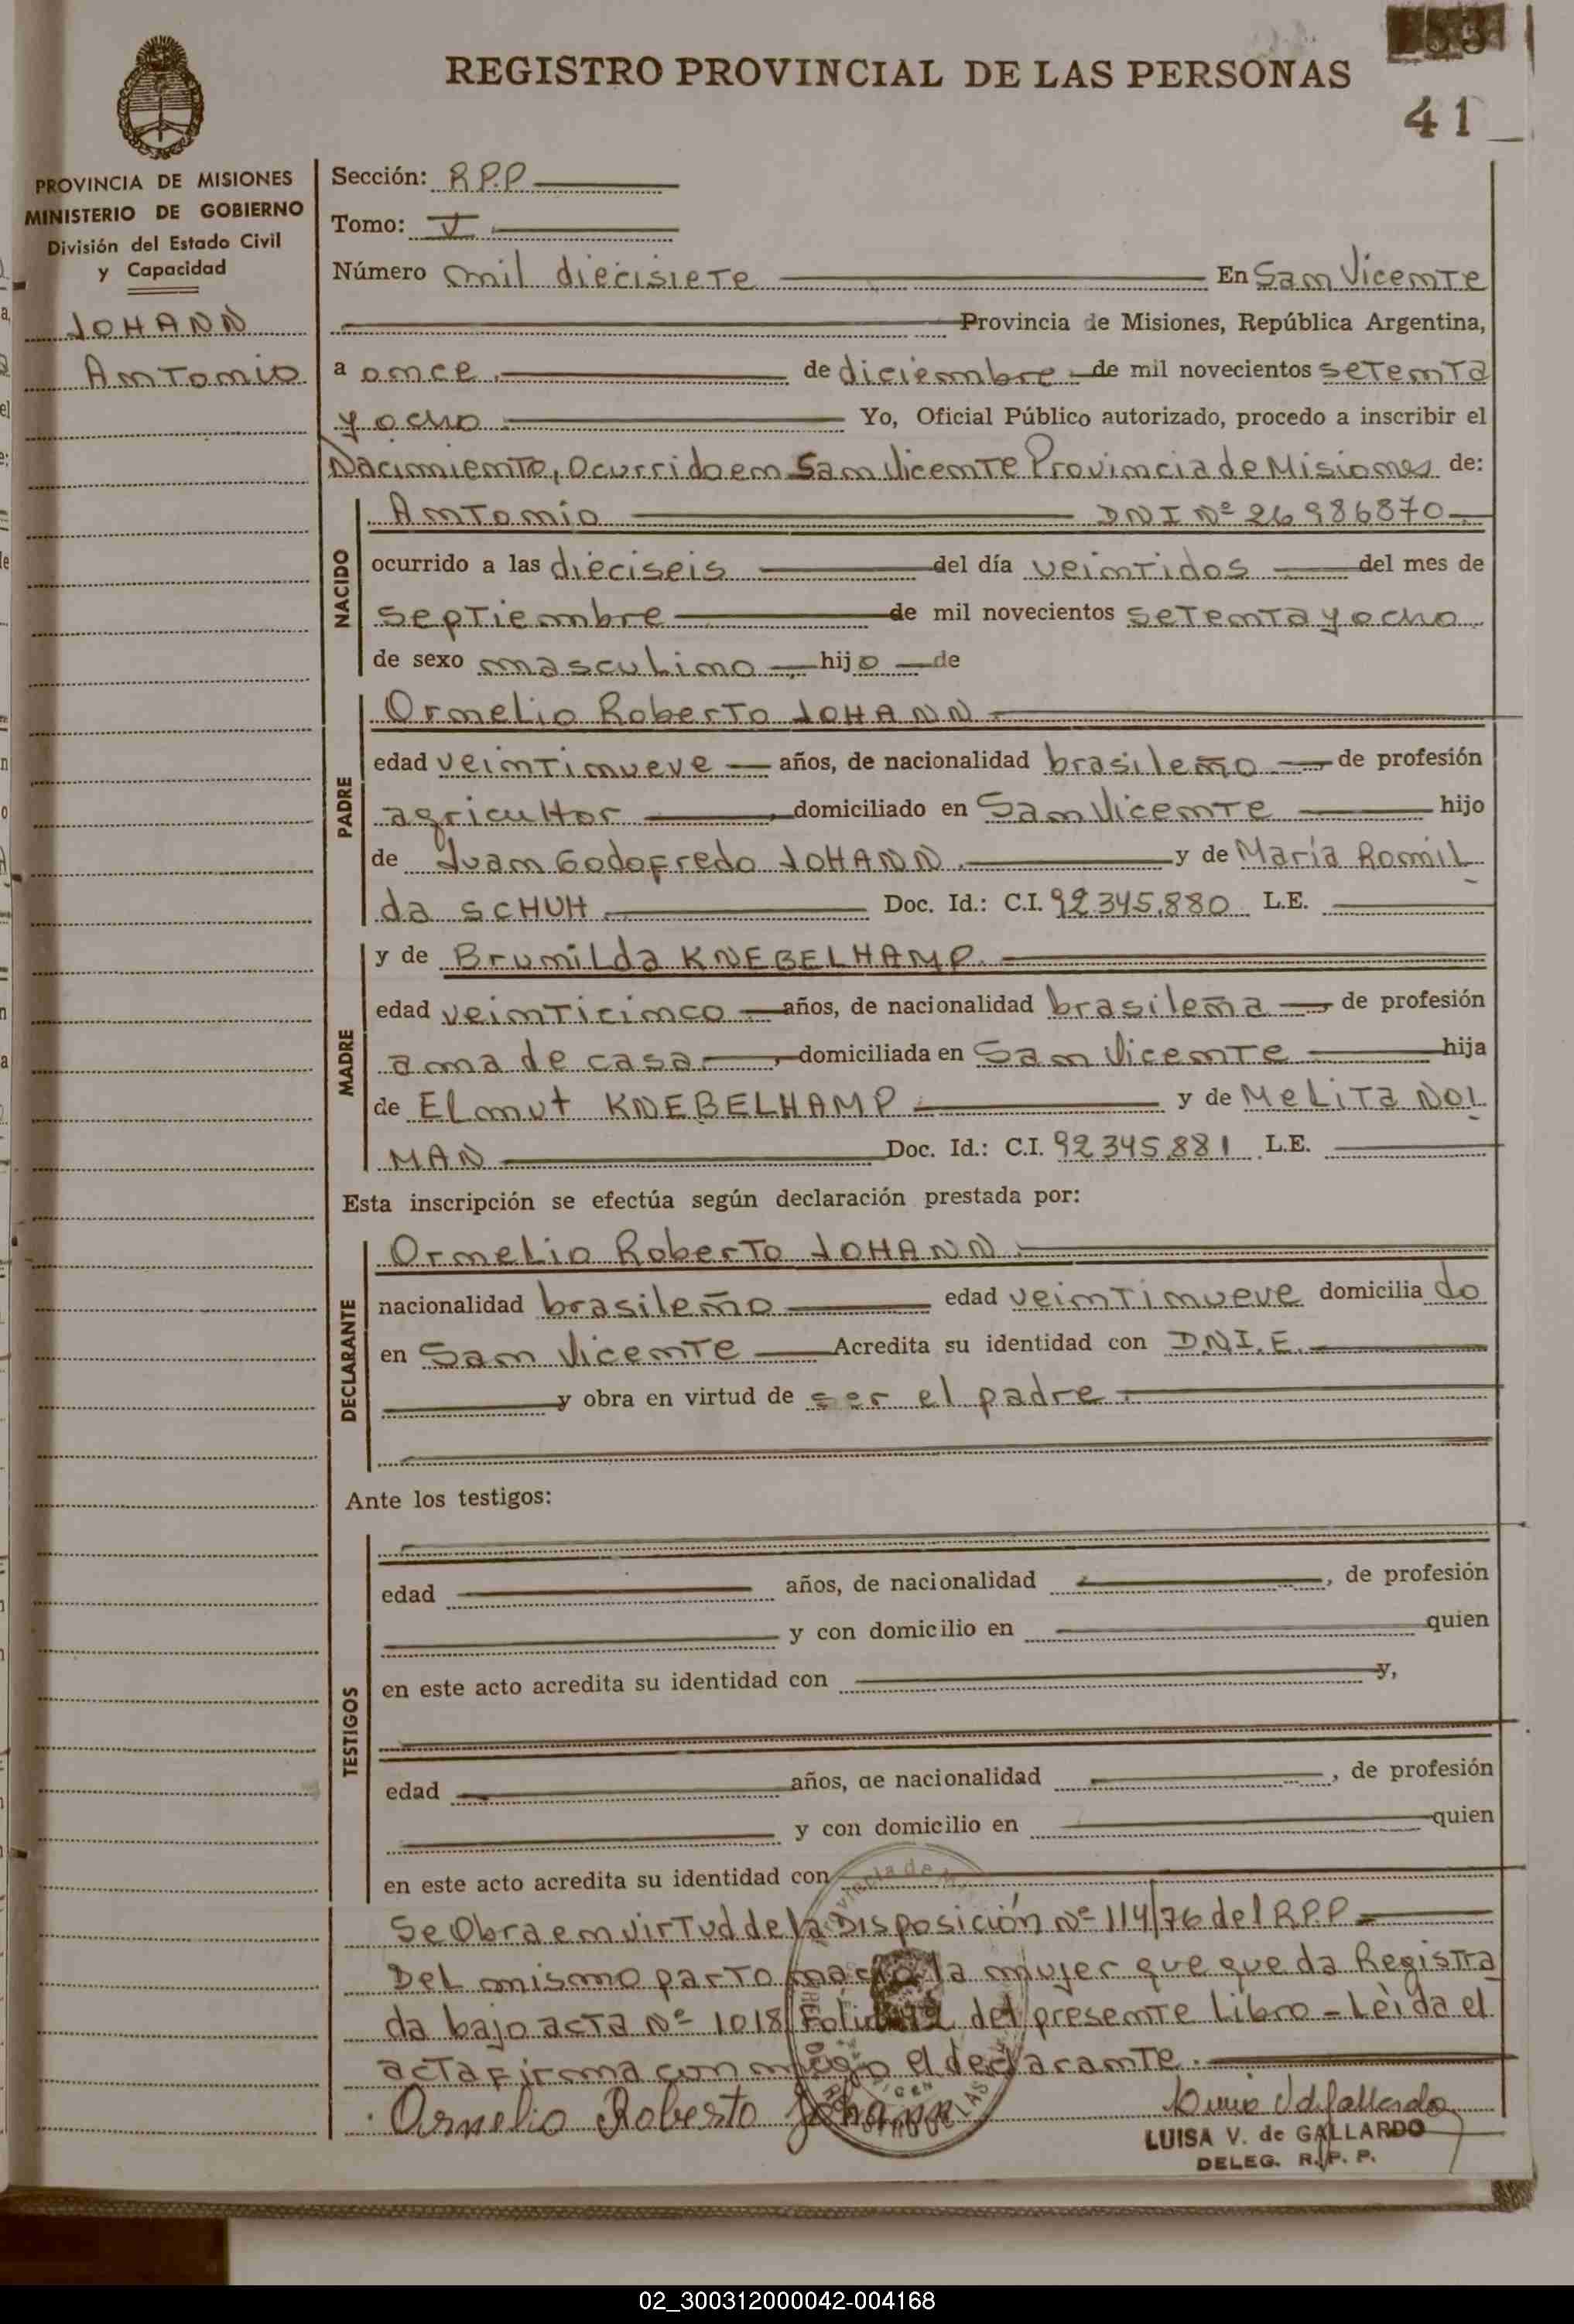 REGISTRO PROVINCIAL DE LAS PERSONAS
41
PROVINCIA DE MISIONES
MINISTERIO DE GOBIERNO
División del Estado Civil
y Capacidad
JOHANN
Antonio
Sección: R.P.P
Tomo: V
Número mil diecisiete En San Vicente
Provincia de Misiones, República Argentina,
a once de diciembre de mil novecientos setenta
y ocho Yo, Oficial Público autorizado, procedo a inscribir el
Nacimiento, ocurrido en San Vicente Provincia de Misiones de:
NACIDO
Antonio DNI Nº 26986870
ocurrido a las dieciseis del día veintidos del mes de
septiembre de mil novecientos setenta y ocho
de sexo masculino hijo de
PADRE
Ornelio Roberto JOHANN
edad veintinueve años, de nacionalidad brasileño de profesión
agricultor, domiciliado en San Vicente hijo
de Juan Godofredo JOHANN y de María Romil
da SCHUH Doc. Id.: C.I. 92.345.880 L.E.
MADRE
y de Brunilda KNEBELHAMP
edad veinticinco años, de nacionalidad brasileña, de profesión
ama de casa, domiciliada en San Vicente hija
de Elmut KNEBELHAMP y de Melita NOL
MAN Doc. Id.: C.I. 92.345.881 L.E.
Esta inscripción se efectúa según declaración prestada por:
DECLARANTE
Ornelio Roberto JOHANN
nacionalidad brasileño edad veintinueve domicilia do
en San Vicente Acredita su identidad con D.N.I.E.
y obra en virtud de ser el padre
Ante los testigos:
TESTIGOS
edad años, de nacionalidad , de profesión
y con domicilio en quien
en este acto acredita su identidad con y,
edad años, de nacionalidad , de profesión
y con domicilio en quien
en este acto acredita su identidad con
Se Obra en virtud de la Disposición Nº 114/76 del R.P.P
Del mismo parto nació la mujer que queda Registra
da bajo acta Nº 1018 Folio del presente Libro - Leída el
acta firma conmigo el declarante.
Ornelio Roberto Johann
LUISA V. de GALLARDO
DELEG. R. P. P.
02_300312000042-004168